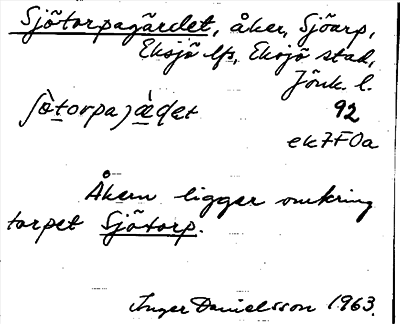 Sjötorpagärdet, åker, Sjöarp,
Eksjö lfs, Eksjö stad,
Jönk. l.
92
ek7F0a
Åkern ligger omkring
torpet Sjötorp.
Inger Danielsson 1963.